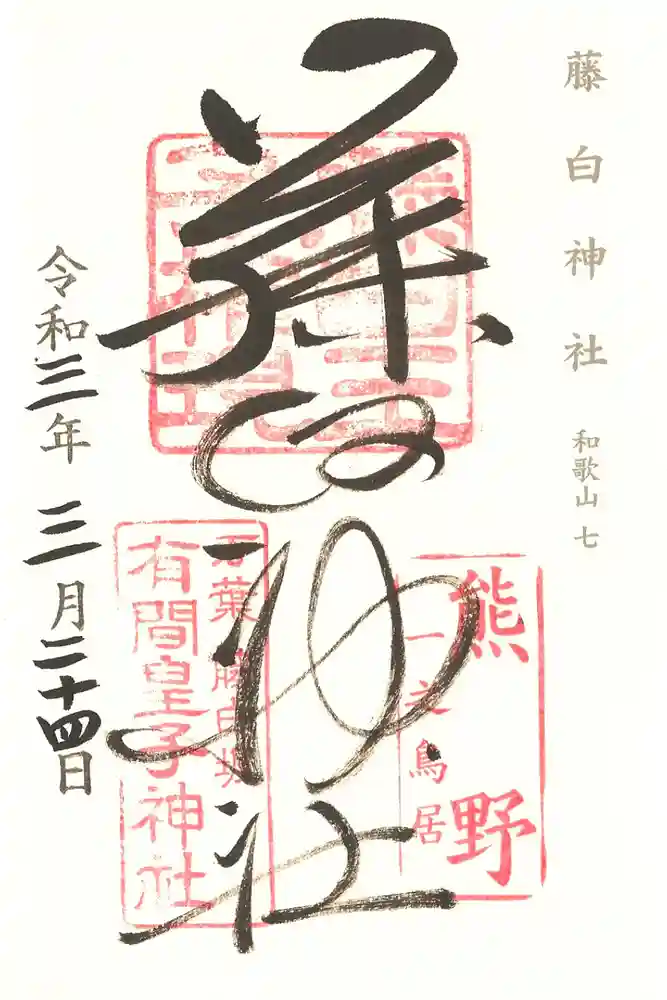 藤白神社 和歌山 七
藤白神社
熊野
一之鳥居
万葉 藤白坂
有間皇子神社
令和三年 三月二十四日